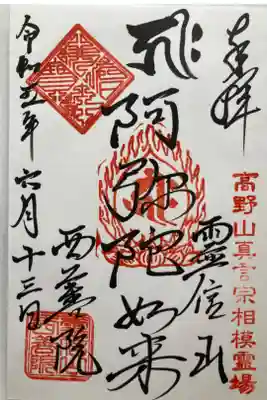 奉拝
高野山真言宗相模霊場
霊信山
阿弥陀如来
西善院
令和五年六月十三日